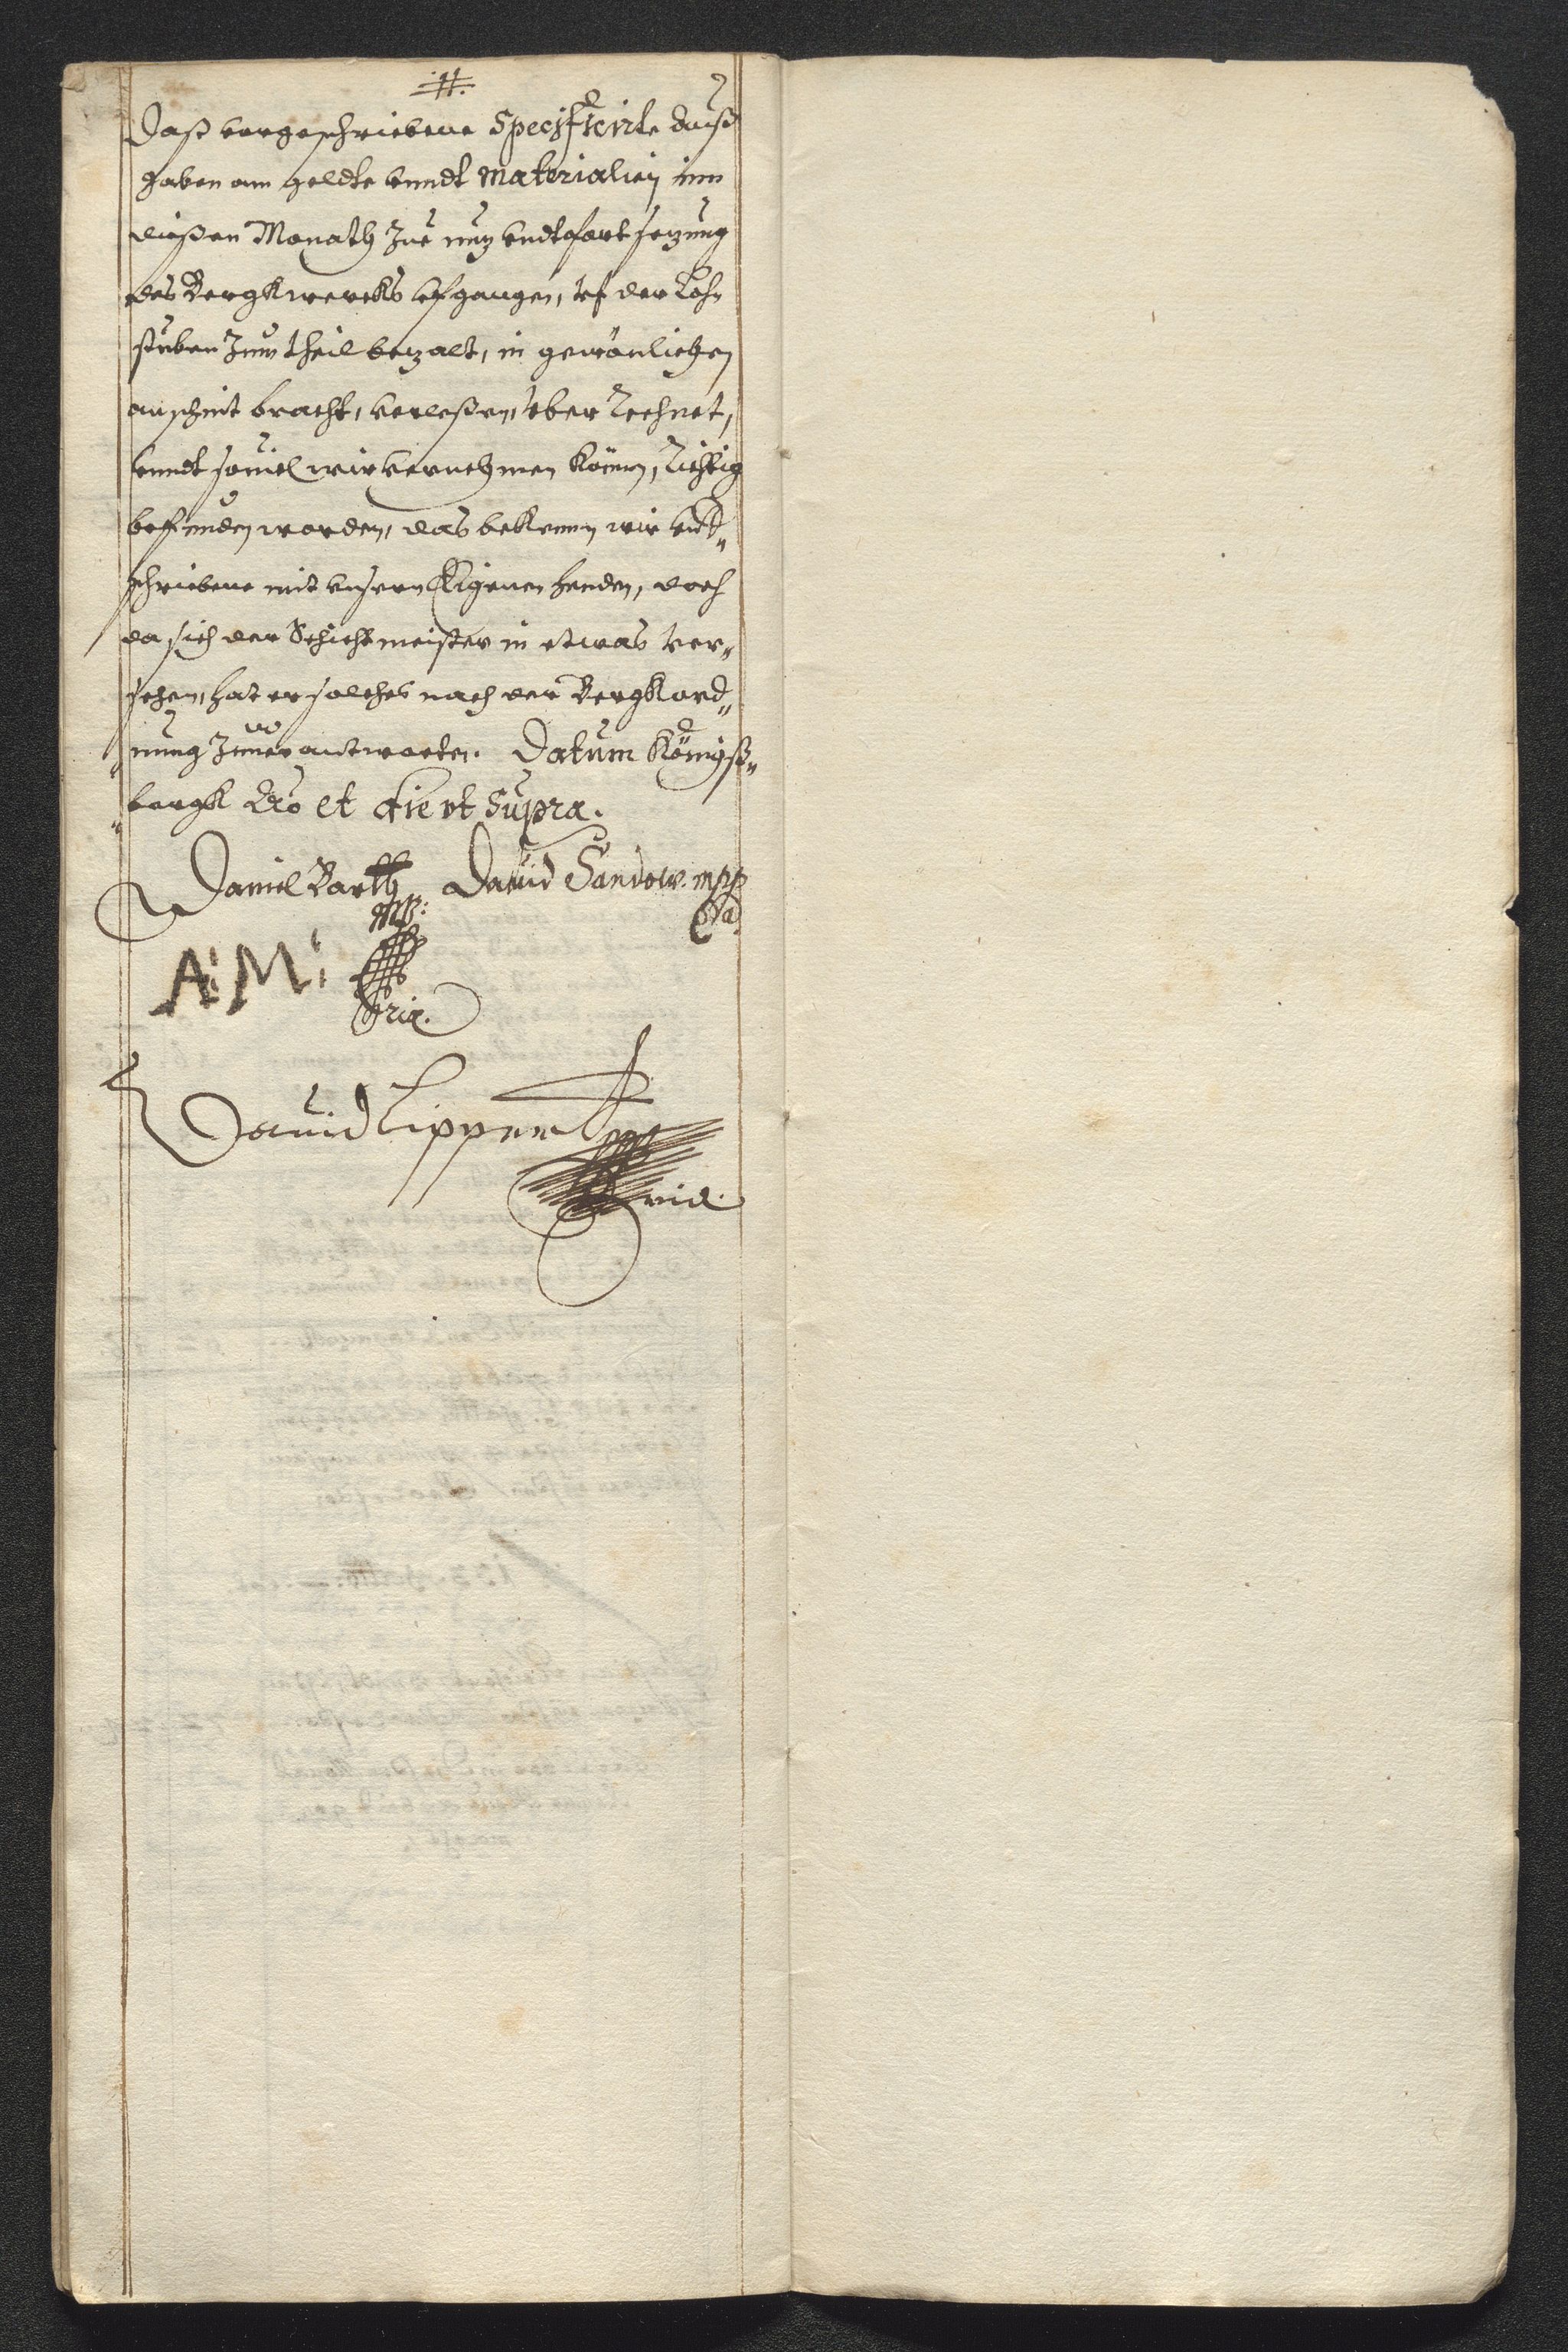 Daß vorgeschriebene Specificirte Auß
gaben ann geldte vnndt Materialien inn
dießen Monath Zue nuz vndt fortsezung
des Bergkwercks vfgangen, vf der Loh¬
stuben Zum theil bezalt, in gewönlichen
anschnit bracht, verleßen, vberrechnet,
vnndt souiel wir vernehmen können, richtig
befunden worden, das bekennen wir vnd„
schriebene mit vnsern Eigenen henden, doch
da sich der Schichtmeister in etwas ver„
sehen, hat er solches nach der Bergkord„
nung Zuuerantworten. Datum Königß„
„bergk et die vt Supra.
Daniel Barth David Sandow. mpp
mp:
A: M:
David Lippert